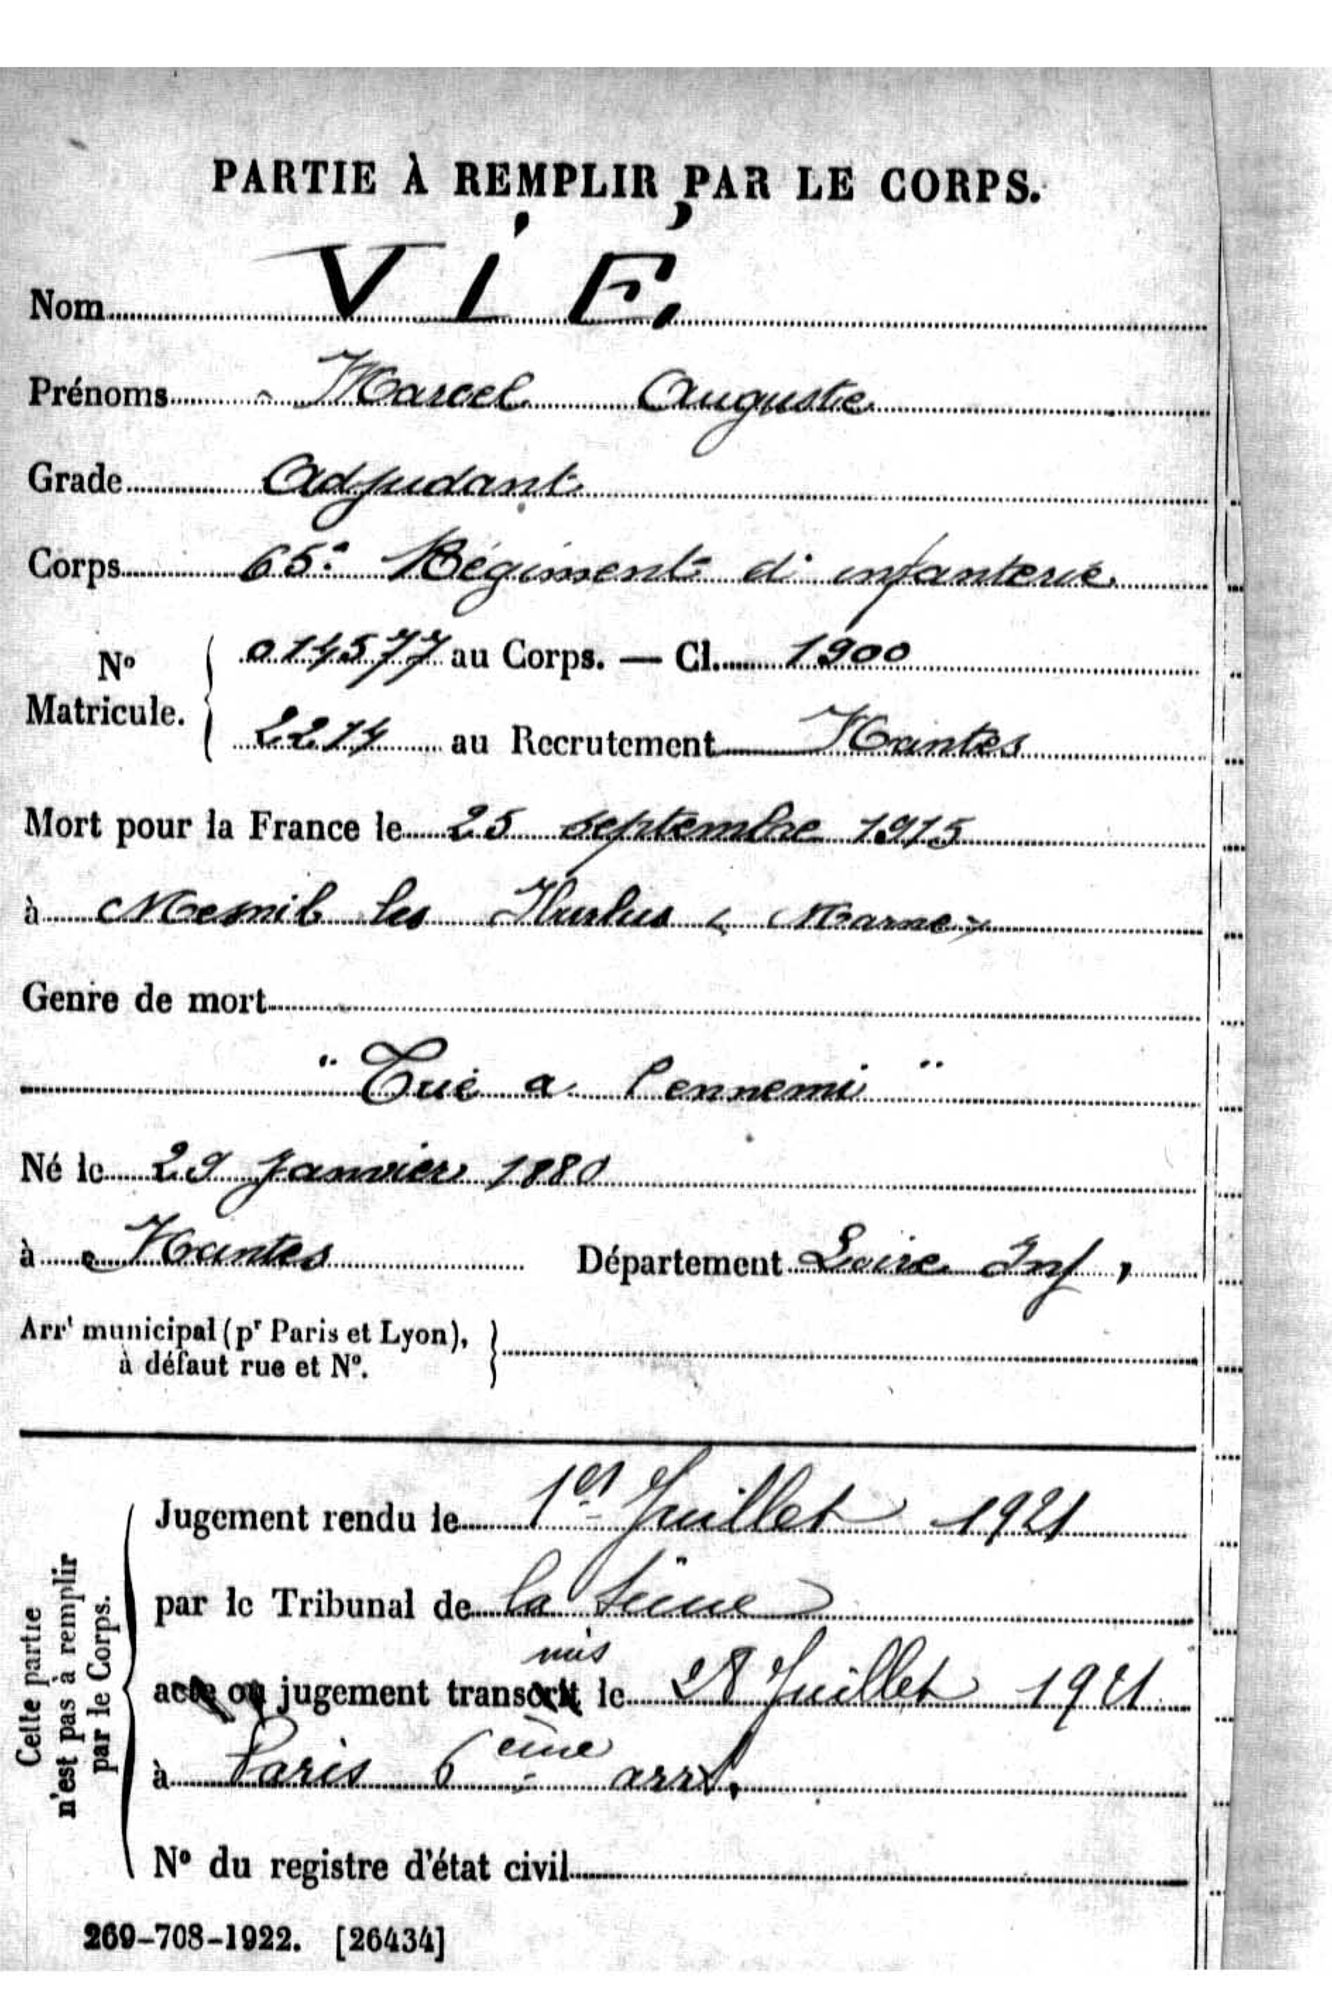 PARTIE À REMPLIR PAR LE CORPS.
Nom VIÉ,
Prénoms Marcel Auguste
Grade Adjudant
Corps 65e Régiment d'infanterie
No Matricule. 014577 au Corps. — Cl. 1900
2214 au Recrutement Nantes
Mort pour la France le 25 septembre 1915
à Mesnil les Hurlus (Marne)
Genre de mort
"Tué a l'ennemi"
Né le 29 Janvier 1880
à Nantes Département Loire Inf,
Arrt municipal (pr Paris et Lyon),
à défaut rue et No.
Cette partie n'est pas à remplir par le Corps.
Jugement rendu le 1er Juillet 1921
par le Tribunal de la Seine
mis
acte ou jugement transcrit le 28 Juillet 1921
à Paris 6ème arrt.
No du registre d'état civil
269-708-1922. [26434]